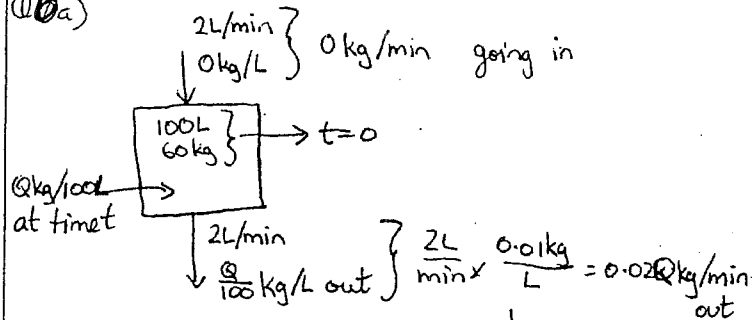 a)
2L/min
0kg/L } 0kg/min going in
100L
60kg } → t=0
Qkg/100L
at time t
2L/min
Q/100 kg/L out } 2L/min x 0.01kg/L = 0.02Qkg/min
out